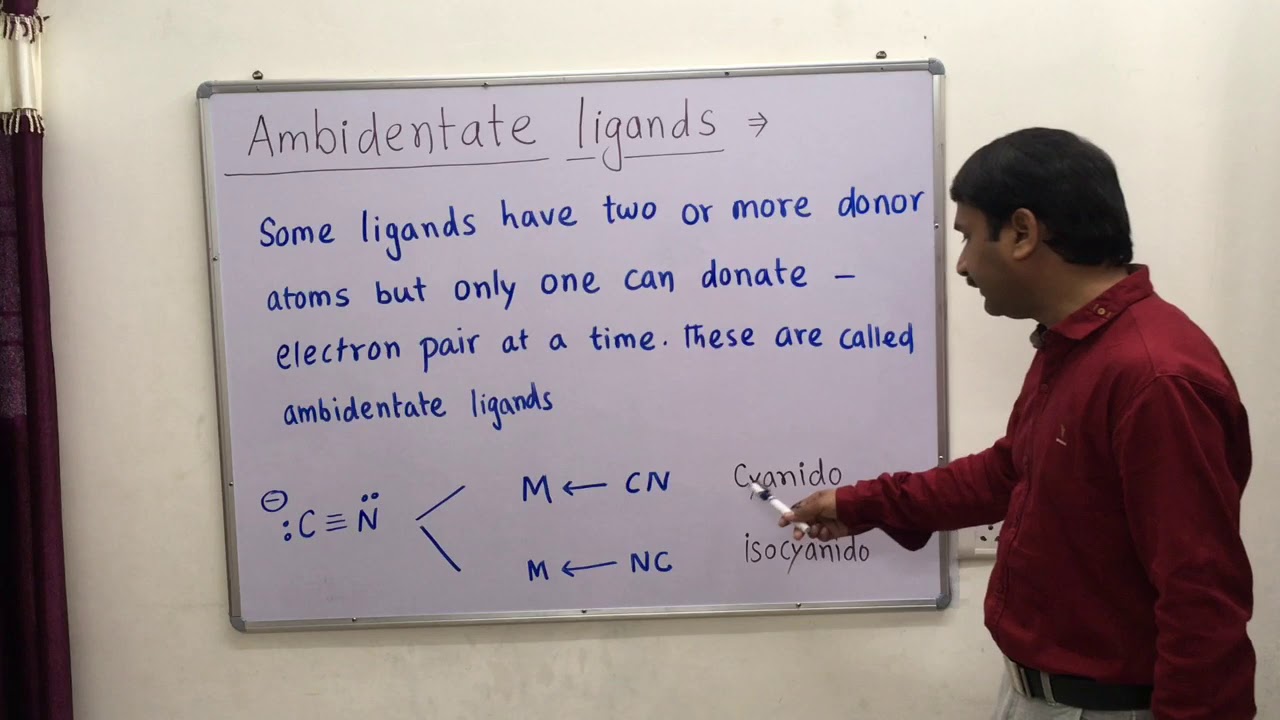 Ambidentate ligands ⇒
Some ligands have two or more donor
atoms but only one can donate –
electron pair at a time. These are called
ambidentate ligands
⊖
:C≡N̈
M ← CN Cyanido
M ← NC isocyanido